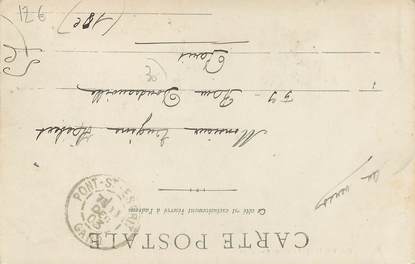 CARTE POSTALE
Ce côté est exclusivement réservé à l'adresse
PONT-ST-ESPRIT
GARD
DEC
03
Monsieur Eugène
77 Rue Doudeauville
Paris
(18e)